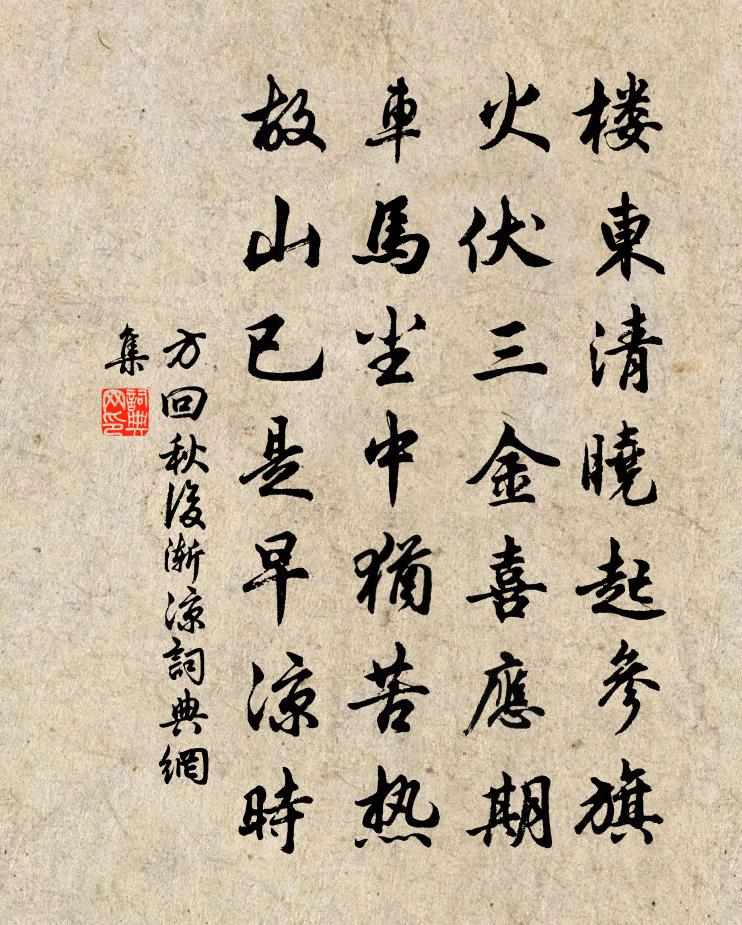 楼東清曉起參旗
火伏三金喜應期
車馬尘中猶苦热
故山已是早凉時
方回秋後漸凉詞典網
集
詞典網印